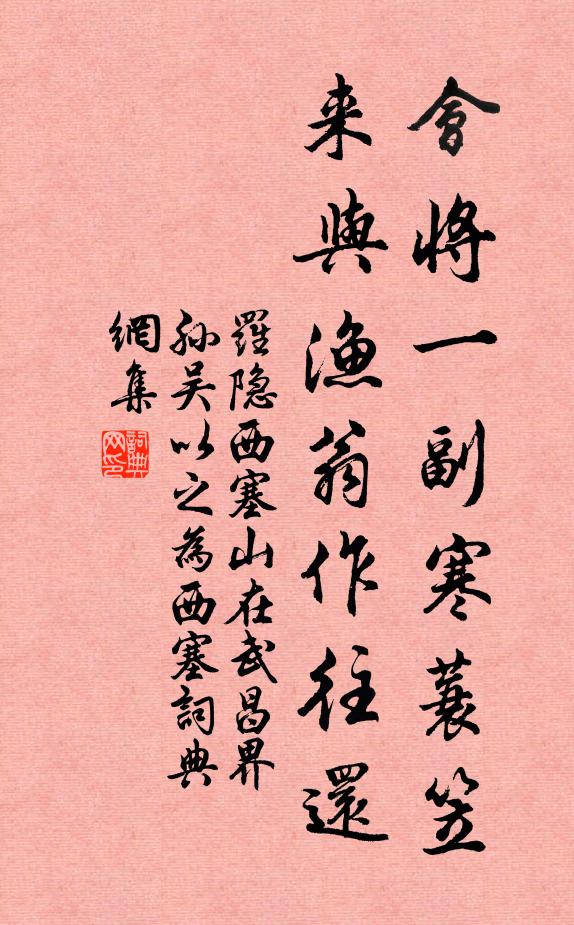 會將一副寒蓑笠
来與漁翁作往還
羅隐西塞山在武昌界
孙吴以之為西塞詞典
網集
詞典
网印